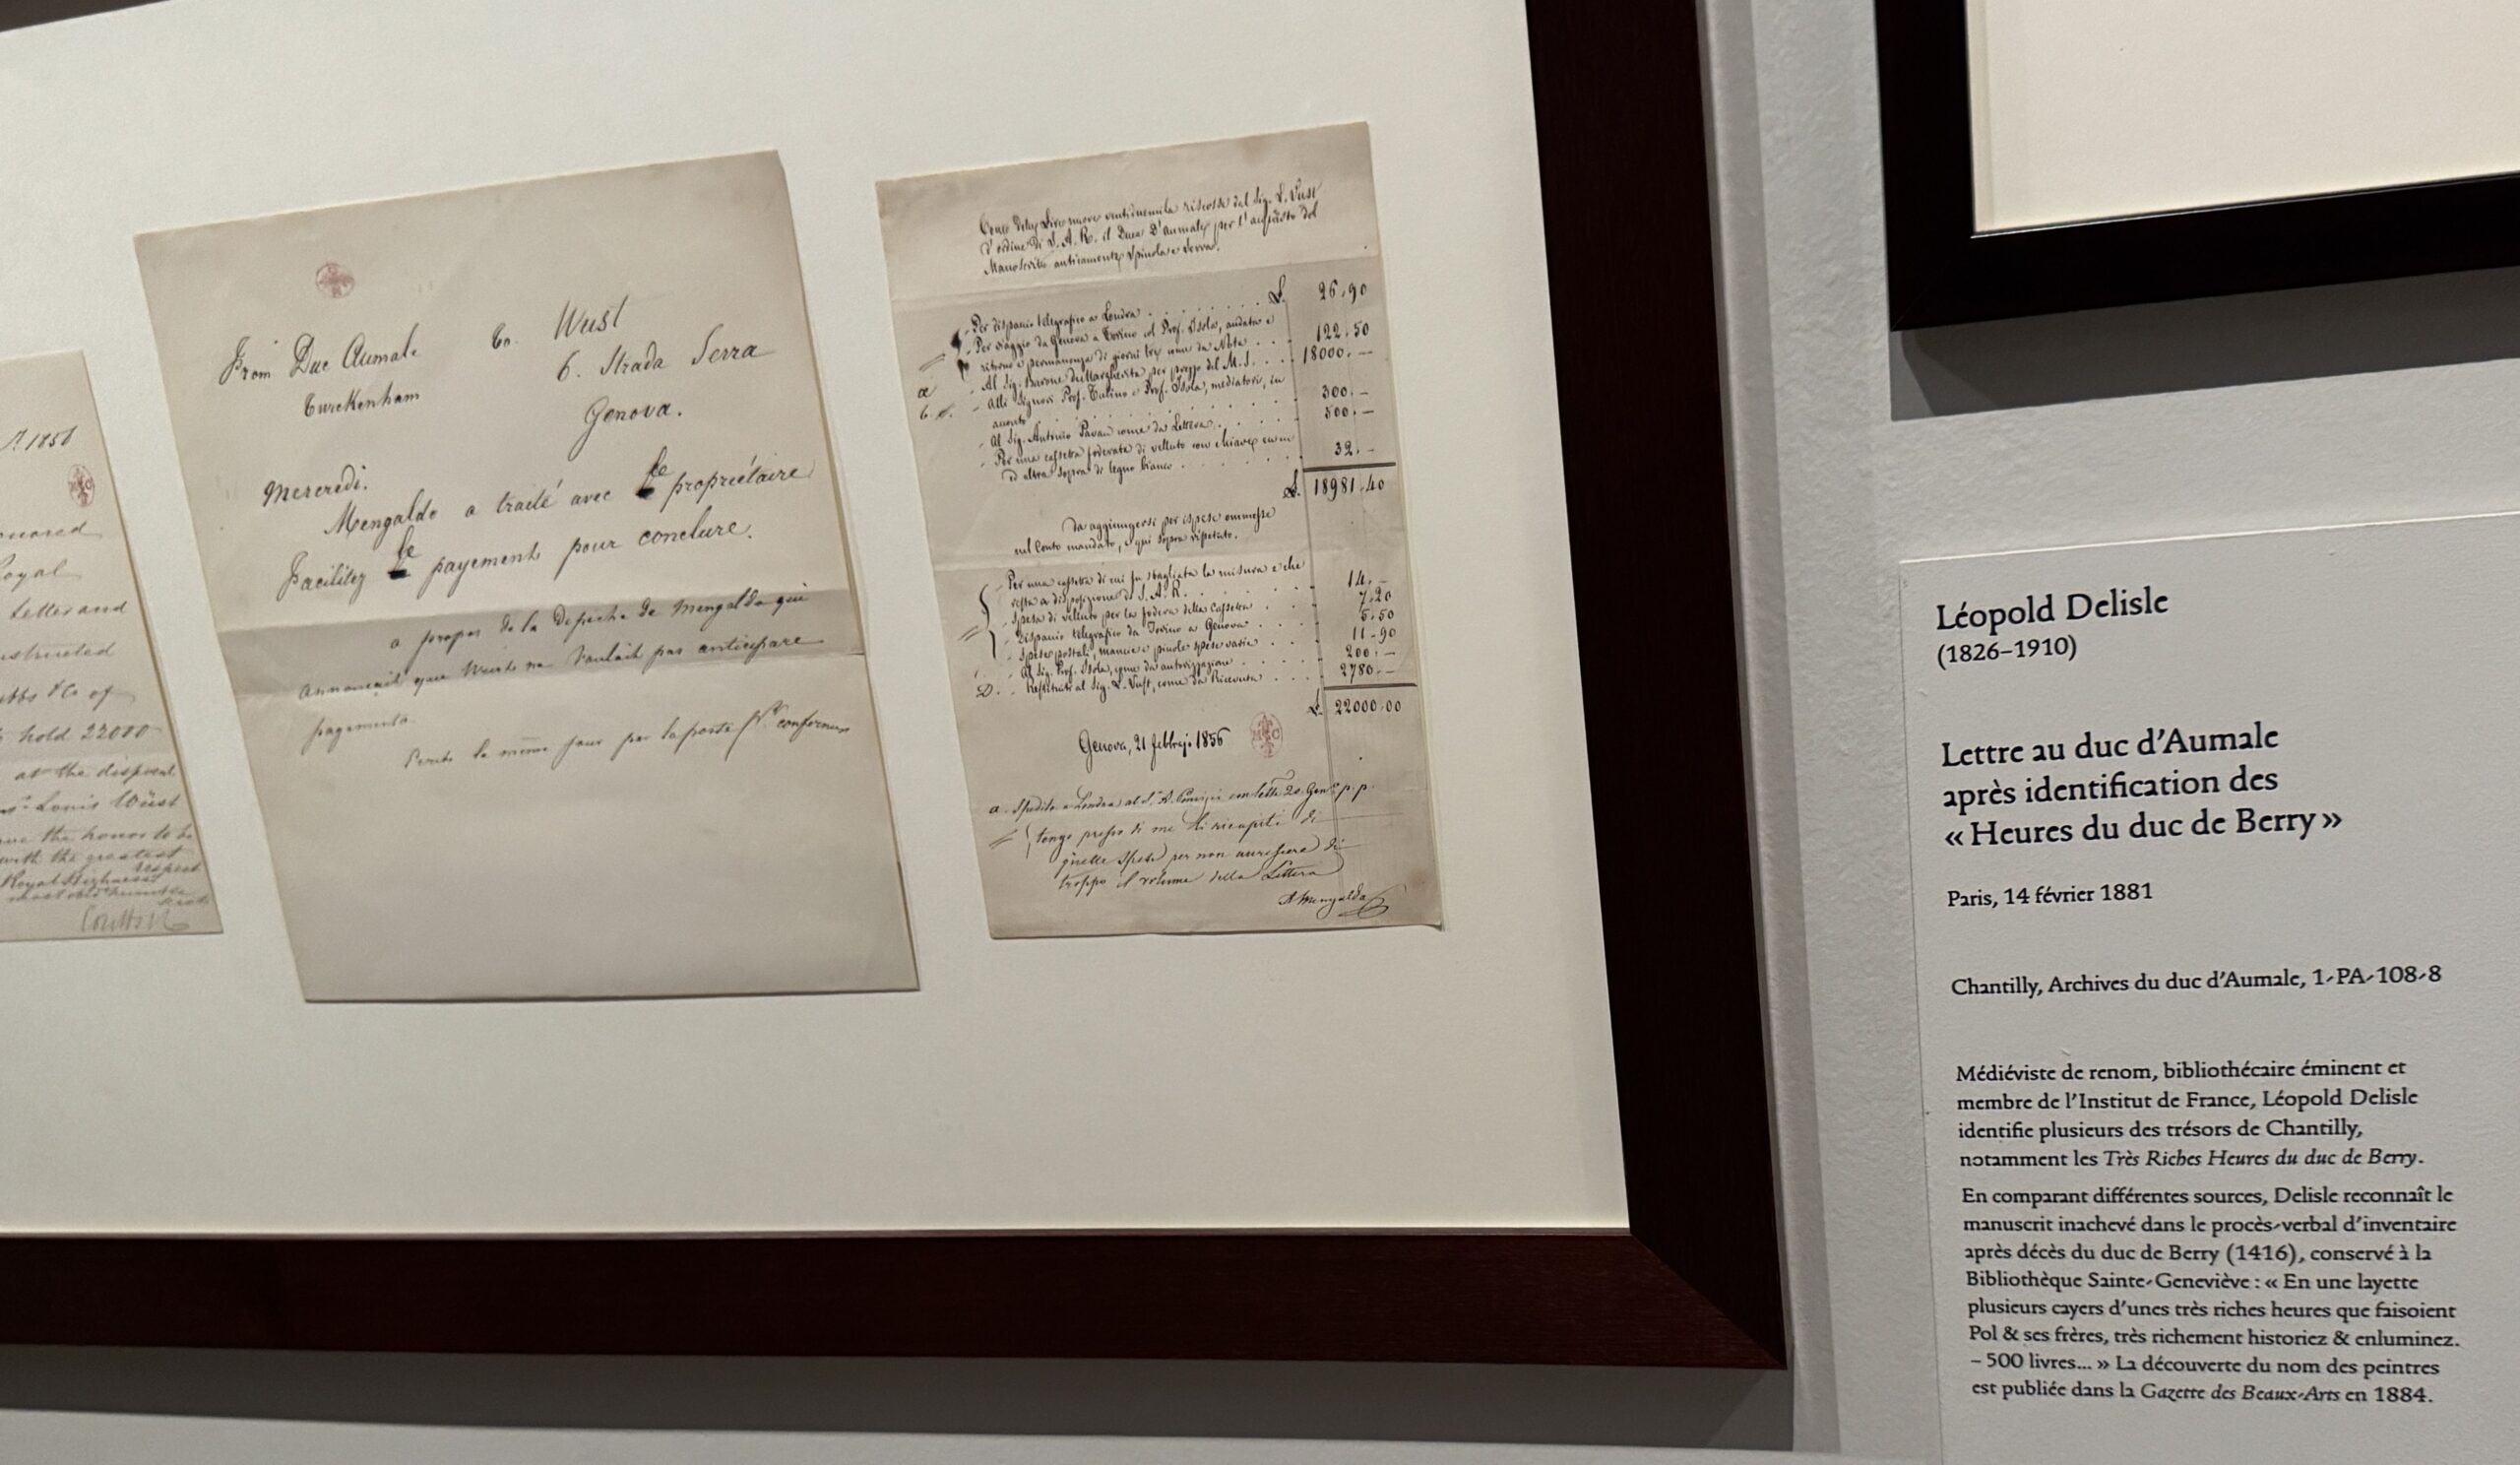 1856
honored
Royal
Letter and
instructed
Coutts & Co of
hold 22000
at the disposal
Louis Wüst
have the honor to be
with the greatest
respect
Royal Highness'
most obed humble
Coutts & Co
From Duc Aumale to Wust
Twickenham 6. Strada Serra
Genova.
Mercredi.
Mengaldo a traité avec le propriétaire
Facilitez le payement pour conclure.
a propos de la Depeche de Mengaldo qui
annoncait que Wüst ne voulait pas anticipare
pagamento
Ecrit le même jour par la poste pr confirmer
Conto delle Lire nuove ventiduemila riscosse dal Sig. L. Vust
d'ordine di S. A. R. il Duca D'aumale, per l'acquisto del
Manoscritto anticamente Spinola e Serra.
- Per dispaccio telegrafico a Londra . . . £. 26,90
- Per viaggio da Genova a Torino col Prof. Isola, andata e
ritorno e permanenza di giorni tre come da Nota . . . 122,50
a - Al Sig. Barone de Margherita per prezzo del M.S. . . . 18000. —
b. c. - Alli Signori Prof. Isola, mediatori, in
acconto . . . 300. —
- Al Sig. Antonio Pavan come da Lettera . . . 500. —
- Per una cassetta foderata di velluto con chiave, con
altra sopra di legno bianco . . . 32. —
£. 18981,40
Da aggiungersi per ispese ommesse
nel Conto mandato, e qui sopra ripetuto.
- Per una cassetta di cui fu sbagliata la misura e che
resta a disposizione di S. A. R. . . . 14. —
- Spesa di velluto per la fodera della cassetta . . . 7,20
- Dispaccio telegrafico da Torino a Genova . . . 5,50
- Spese postali, mancie e piccole spese varie . . . 11,90
- Al Sig. Prof. Isola, come da autorizzazione . . . 200. —
D. - Restituiti al Sig. L. Vust, come da Ricevuta . . . 2780. —
£. 22000,00
Genova, 21 febbrajo 1856
a. Spedito a Londra al S. A. Panizzi con lettera 20 Genn. p. p.
tengo presso di me li ricapiti di
quelle spese per non accrescere di
troppo il volume della Lettera
A Mengaldo
Léopold Delisle
(1826–1910)
Lettre au duc d'Aumale
après identification des
« Heures du duc de Berry »
Paris, 14 février 1881
Chantilly, Archives du duc d'Aumale, 1-PA-108-8
Médiéviste de renom, bibliothécaire éminent et
membre de l'Institut de France, Léopold Delisle
identifie plusieurs des trésors de Chantilly,
notamment les Très Riches Heures du duc de Berry.
En comparant différentes sources, Delisle reconnaît le
manuscrit inachevé dans le procès-verbal d'inventaire
après décès du duc de Berry (1416), conservé à la
Bibliothèque Sainte-Geneviève : « En une layette
plusieurs cayers d'unes très riches heures que faisoient
Pol & ses frères, très richement historiez & enluminez.
– 500 livres... » La découverte du nom des peintres
est publiée dans la Gazette des Beaux-Arts en 1884.